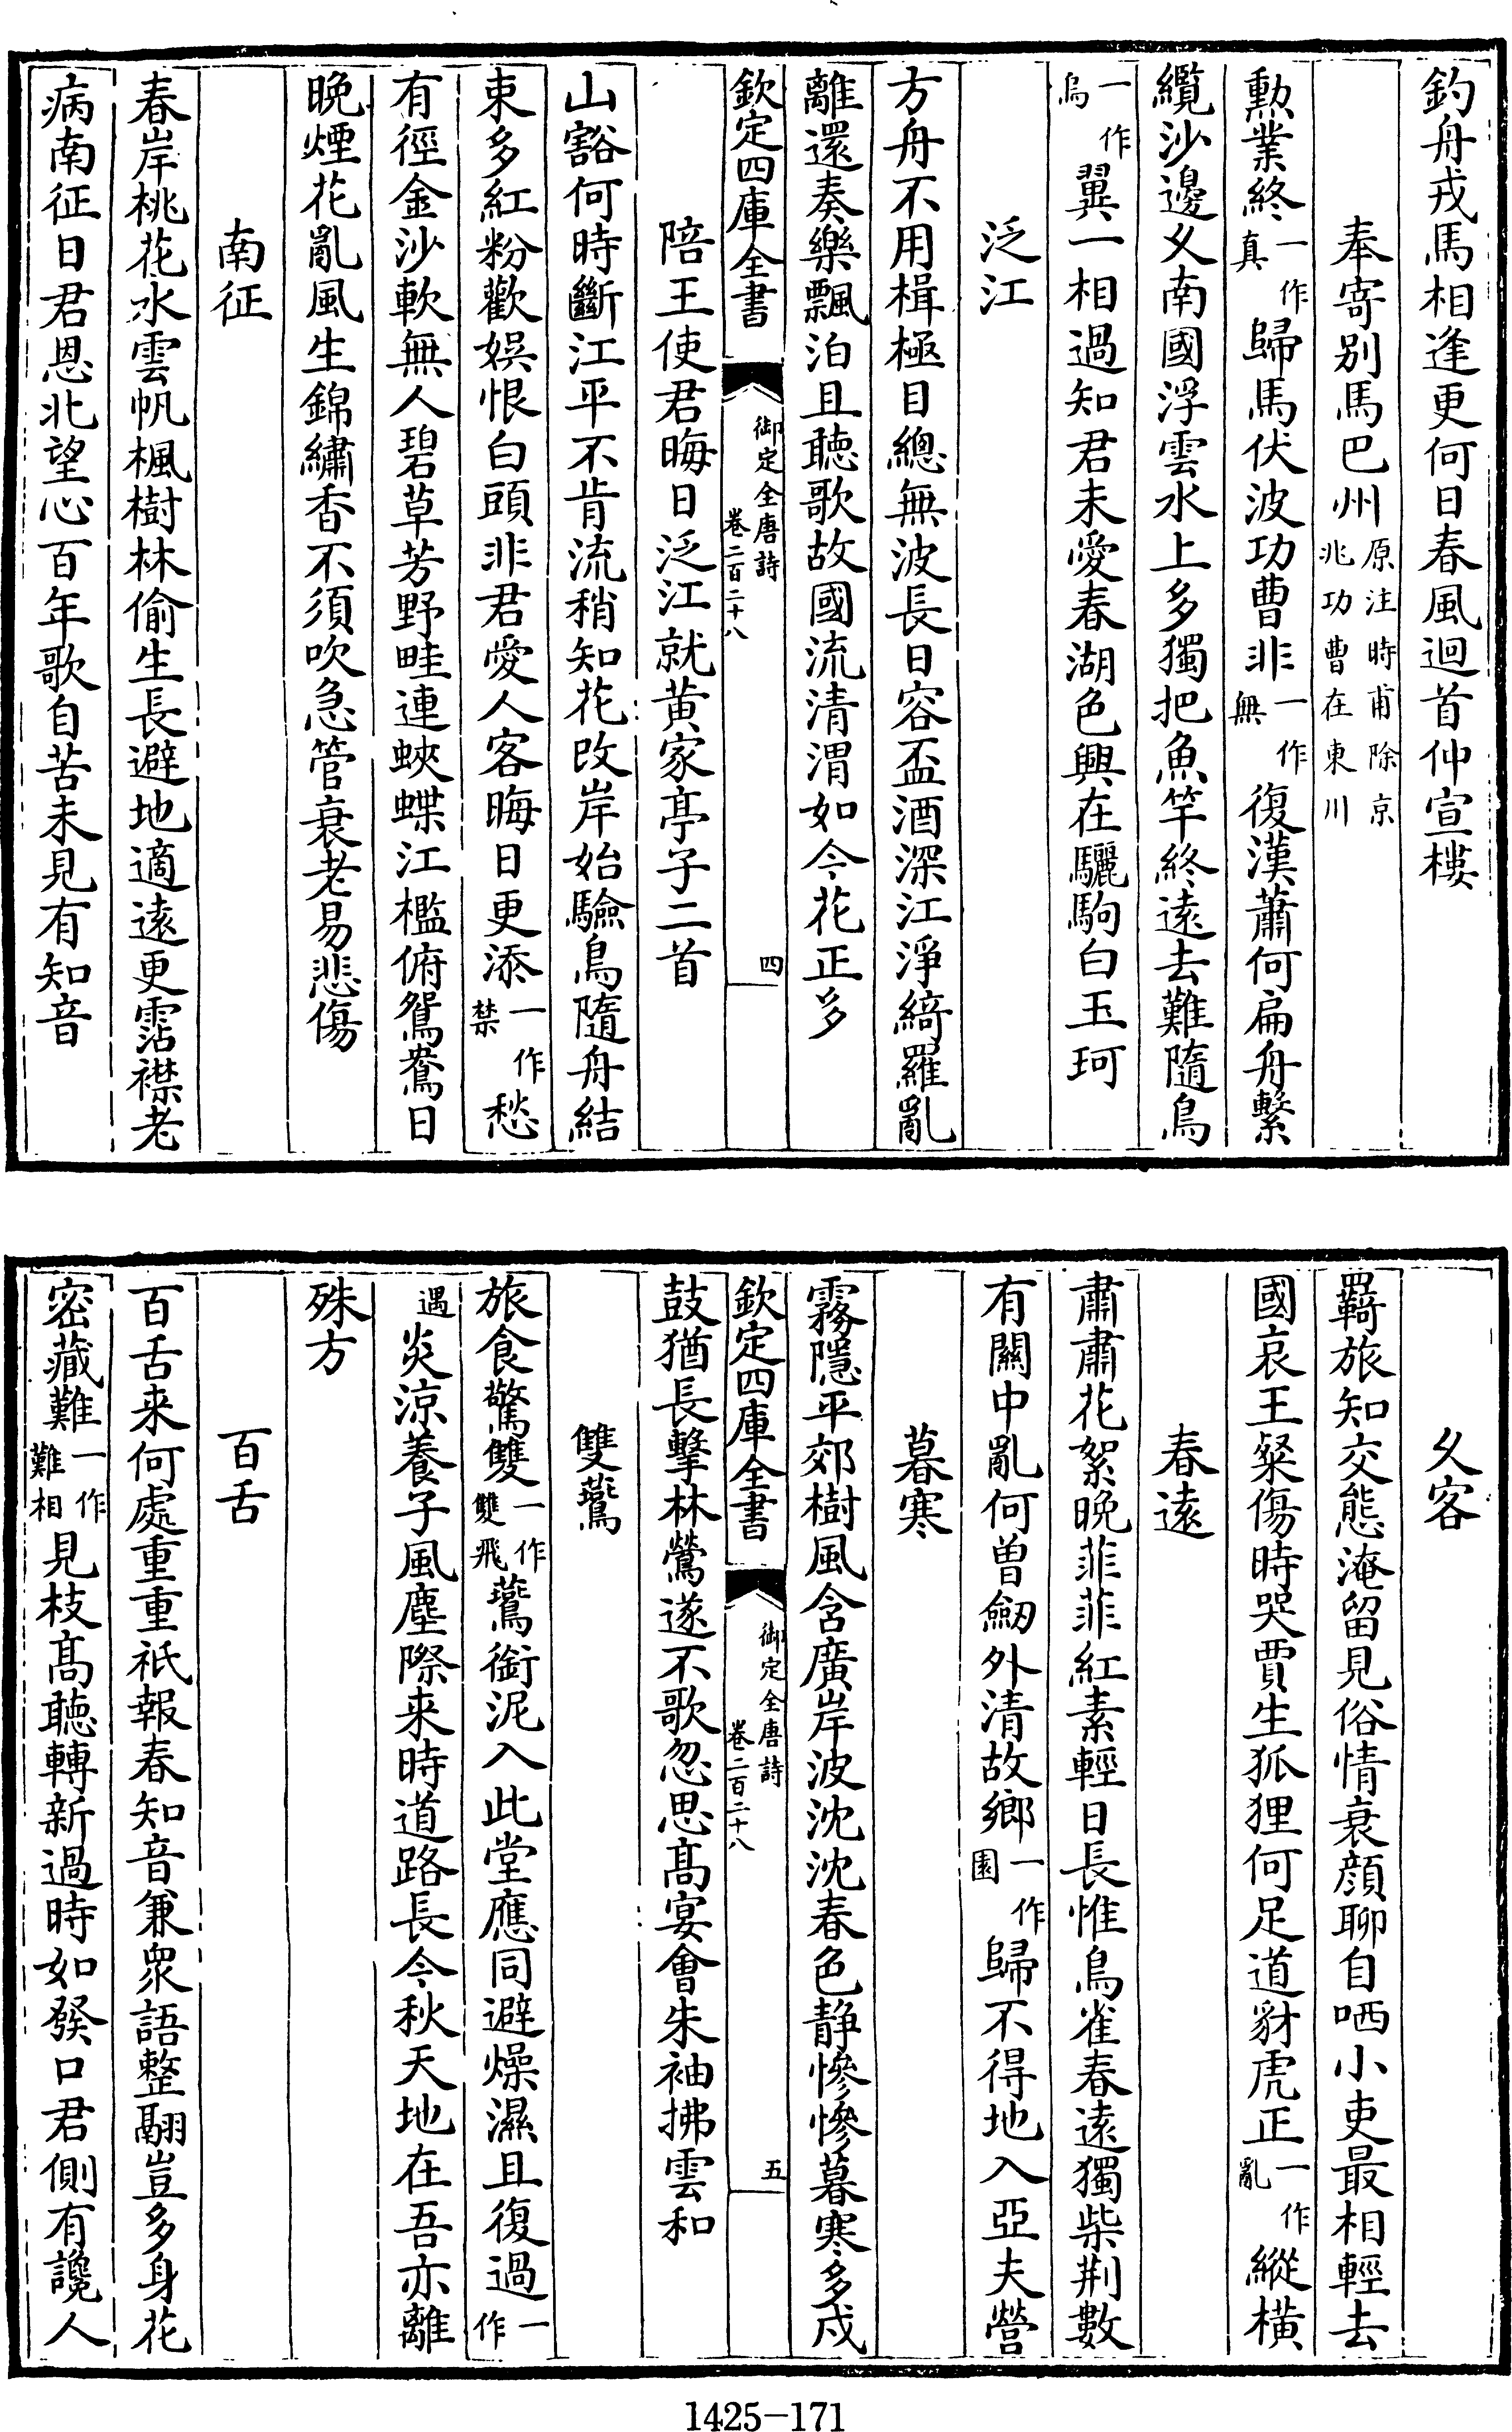 釣舟戎馬相逢更何日春風迴首仲宣樓
奉寄别馬巴州原注時甫除京兆功曹在東川
勲業終一作真歸馬伏波功曹非一作無復漢蕭何扁舟繫
纜沙邊乆南國浮雲水上多獨把魚竿終逺去難隨鳥
一作烏翼一相過知君未愛春湖色興在驪駒白玉珂
泛江
方舟不用楫極目總無波長日容盃酒深江淨綺羅亂
離還奏樂飄泊且聽歌故國流清渭如今花正多
欽定四庫全書 御定全唐詩 卷二百二十八 四
陪王使君晦日泛江就黄家亭子二首
山豁何時斷江平不肯流稍知花改岸始驗鳥隨舟結
束多紅粉歡娱恨白頭非君愛人客晦日更添一作禁愁
有徑金沙軟無人碧草芳野畦連蛺蝶江檻俯鴛鴦日
晚煙花亂風生錦繡香不須吹急管衰老易悲傷
南征
春岸桃花水雲帆楓樹林偷生長避地適逺更霑襟老
病南征日君恩北望心百年歌自苦未見有知音
乆客
羇旅知交態淹留見俗情衰顔聊自哂小吏最相輕去
國哀王粲傷時哭賈生狐狸何足道豺虎正一作亂縱横
春逺
肅肅花絮晚菲菲紅素輕日長惟鳥雀春逺獨柴荆數
有關中亂何曽劒外清故鄉一作園歸不得地入亞夫營
暮寒
霧隱平郊樹風含廣岸波沈沈春色静慘慘暮寒多戍
欽定四庫全書 御定全唐詩 卷二百二十八 五
鼓猶長擊林鶯遂不歌忽思髙宴會朱袖拂雲和
雙鷰
旅食驚雙一作雙飛鷰銜泥入此堂應同避燥濕且復過一作
遇炎涼養子風塵際来時道路長今秋天地在吾亦離
殊方
百舌
百舌来何處重重祇報春知音兼衆語整翮豈多身花
密藏難一作難相見枝髙聽轉新過時如發口君側有讒人
1425-171